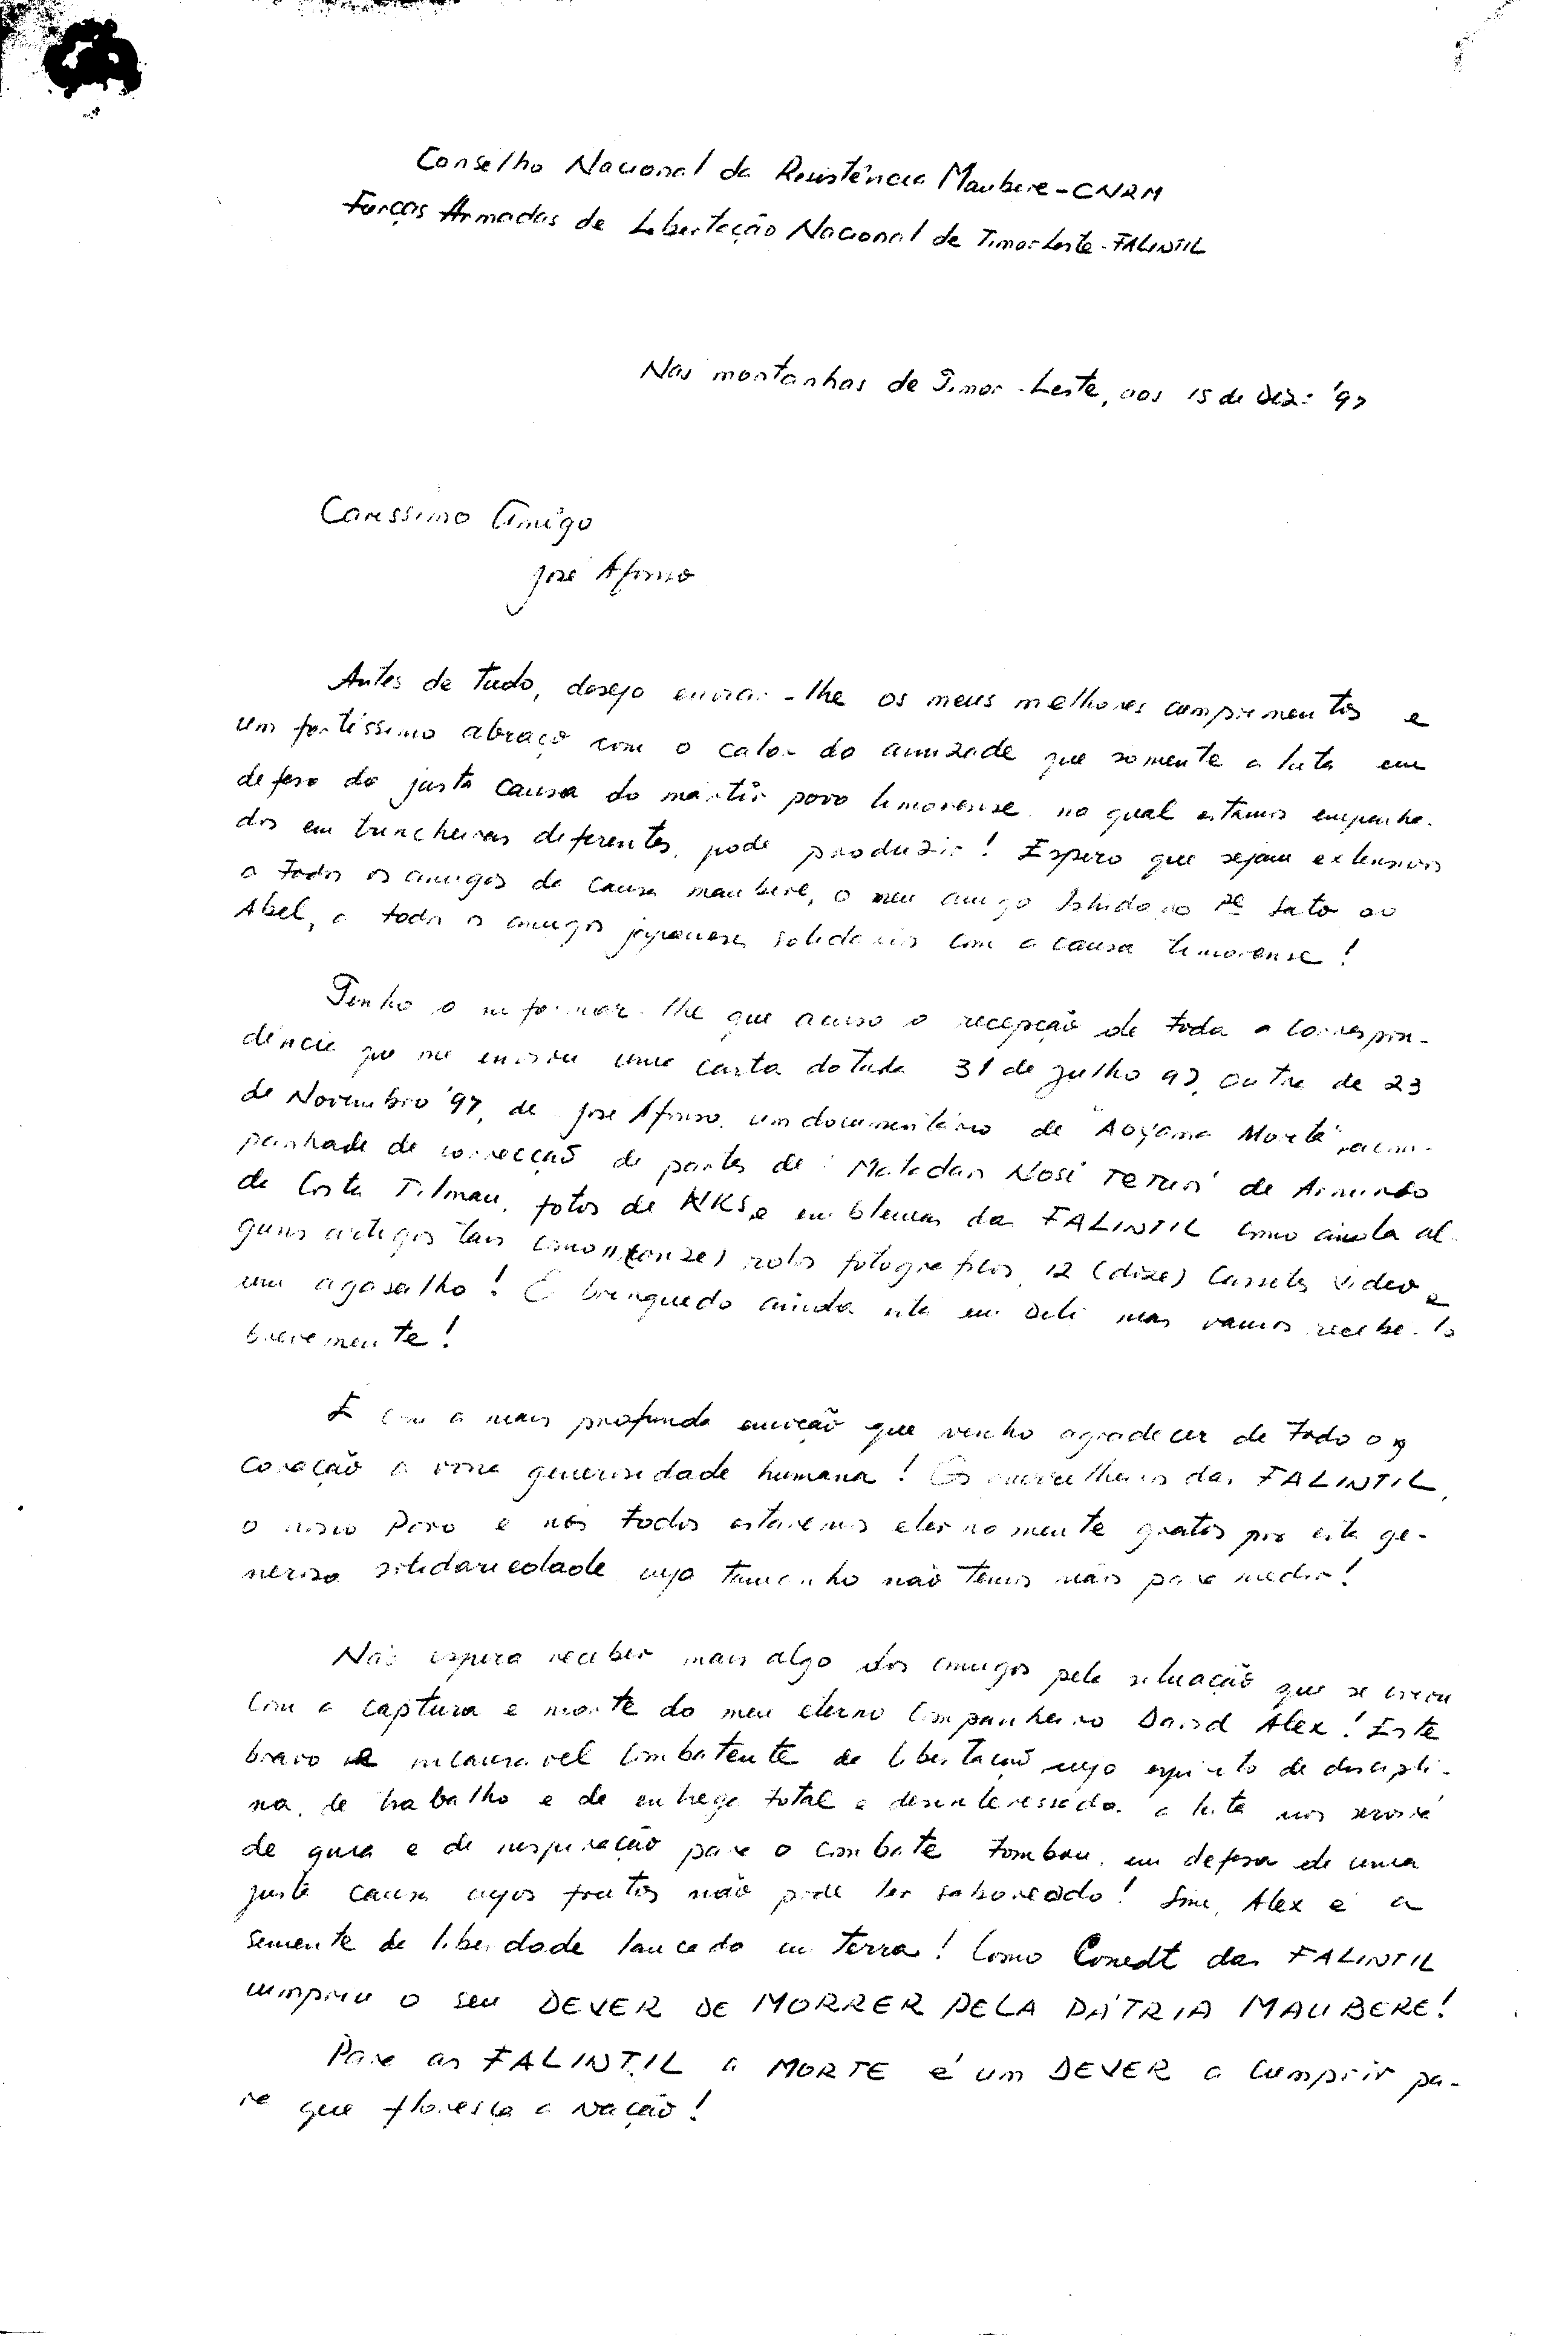 Conselho Nacional da Resistência Maubere - CNRM
Forças Armadas de Libertação Nacional de Timor Leste - FALINTIL
Nas montanhas de Timor-Leste, aos 15 de Dez: '97
Caríssimo Amigo
José Afonso
Antes de tudo, desejo enviar-lhe os meus melhores cumprimentos e
um fortíssimo abraço com o calor da amizade que somente a luta em
defesa da justa causa do mártir povo timorense, na qual estamos empenha-
dos em trincheiras diferentes, pode produzir! Espero que sejam extensivos
a todos os amigos da causa maubere, o meu amigo ao Pe Sato ao
Abel, a todos os amigos japoneses solidários com a causa timorense!
Tenho a informar-lhe que acuso a recepção de toda a correspon-
dência que me enviou uma carta datada 31 de Julho 97, outra de 23
de Novembro '97, de José Afonso, um documentário de "Aoyama Morta", acom-
panhada de correcção de partes de: "Matadan Nosi Terus" de Armindo
da Costa Tilman, fotos de NKS e emblemas das FALINTIL como ainda al-
guns artigos tais como 11 (onze) rolos fotográficos, 12 (doze) Cassetes Video e
um agasalho! O brinquedo ainda está em Dili mas vamos recebe-lo
brevemente!
É com a mais profunda emoção que venho agradecer de todo o
coração a vossa generosidade humana! Os guerrilheiros das FALINTIL,
o nosso Povo e nós todos estaremos eternamente gratos por esta ge-
nerosa solidariedade cujo tamanho não temos mãos para medir!
Não espera receber mais algo dos amigos pela situação que se criou
com a captura e morte do meu eterno companheiro David Alex! Este
bravo e incansável combatente da libertação cujo espírito de discipli-
na, de trabalho e de entrega total e desinteressada à luta nos servirá
de guia e de inspiração para o combate tombou, em defesa de uma
justa causa cujos frutos não pode ter saboreado! Sim, Alex é a
semente de liberdade lançada em terra! Como Comdt das FALINTIL
cumpriu o seu DEVER DE MORRER PELA PÁTRIA MAUBERE!
Para as FALINTIL a MORTE é um DEVER a cumprir pa-
ra que floresça a Nação!